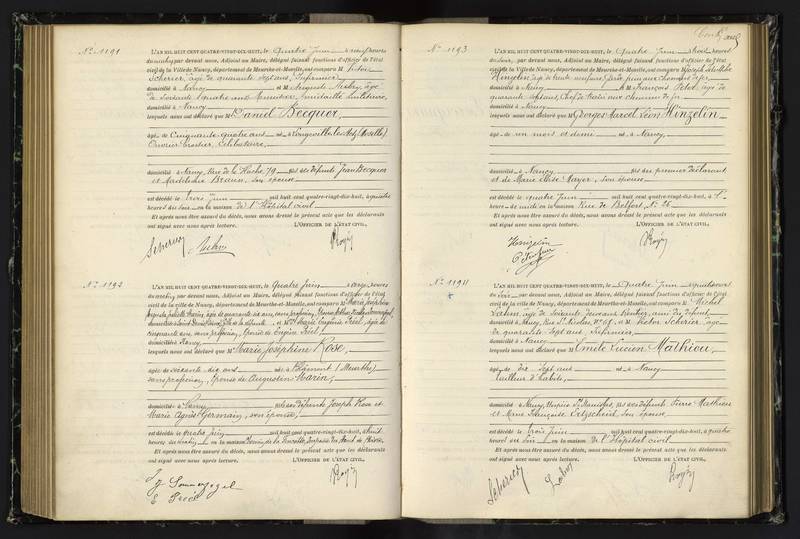 N° 1191
L'AN MIL HUIT CENT QUATRE-VINGT-DIX-HUIT, le Quatre Juin à neuf heures
du matin par devant nous, Adjoint au Maire, délégué faisant fonctions d'officier de l'état
civil de la Ville de Nancy, département de Meurthe-et-Moselle, ont comparu M. Victor
Scherier, âgé de quarante sept ans, Infirmier,
domicilié à Nancy et M. Auguste âgé
de soixante quatre ans militaire
domicilié à Nancy
lesquels nous ont déclaré que M. Daniel Becquer,
âgé de Cinquante quatre ans né à Longeville-les-Metz (Moselle)
Ouvrier Célibataire,
domicilié à Nancy, Rue de la Hache 79 fils des défunts Jean Becquer
et Madeleine Braun, son épouse
est décédé le trois juin mil huit cent quatre-vingt-dix-huit, à quatre
heures du soir en la maison de l'Hôpital civil
Et après nous être assuré du décès, nous avons dressé le présent acte que les déclarants
ont signé avec nous après lecture. L'OFFICIER DE L'ÉTAT CIVIL,
N° 1192
L'AN MIL HUIT CENT QUATRE-VINGT-DIX-HUIT, le Quatre Juin à onze heures
du matin, par devant nous, Adjoint au Maire, délégué faisant fonctions d'officier de l'état
civil de la ville de Nancy, département de Meurthe-et-Moselle, ont comparu M. Marie Joséphine
Juliette Marin, âgée de quarante six ans, sans profession,
domiciliée à fille de la défunte et M. Marie Eugénie Tréel, âgée de
cinquante ans, sans profession, épouse de Eugène Tréel
domicilié à Nancy
lesquels nous ont déclaré que M. Marie Joséphine Rose,
âgée de soixante dix ans née à Blâmont (Meurthe)
sans profession, épouse de Augustin Marin,
domiciliée à Nancy fille des défunts Joseph Rose et
Marie Agnès Germain, son épouse,
est décédée le quatre juin mil huit cent quatre-vingt-dix-huit, à huit
heures du matin en la maison Impasse
Et après nous être assuré du décès, nous avons dressé le présent acte que les déclarants
ont signé avec nous après lecture. L'OFFICIER DE L'ÉTAT CIVIL,
N° 1193
L'AN MIL HUIT CENT QUATRE-VINGT-DIX-HUIT, le Quatre Juin à huit heures
du soir, par devant nous, Adjoint au Maire, délégué faisant fonctions d'officier de l'état
civil de la Ville de Nancy, département de Meurthe-et-Moselle, ont comparu M. Joseph
Hinzelin âgé de trente neuf ans, Garde frein aux chemins de fer,
domicilié à Nancy et M. François Petot, âgé de
quarante ans, Chef de train aux chemins de fer
domicilié à Nancy
lesquels nous ont déclaré que M. Georges Marcel Léon Hinzelin
âgé de un mois et demi né à Nancy
domicilié à Nancy fils du premier déclarant
et de Marie Mayer, son épouse
est décédé le quatre Juin mil huit cent quatre-vingt-dix-huit, à
heures de midi en la maison Rue de Belfort, N° 26
Et après nous être assuré du décès, nous avons dressé le présent acte que les déclarants
ont signé avec nous après lecture. L'OFFICIER DE L'ÉTAT CIVIL,
Hinzelin
N° 1194
L'AN MIL HUIT CENT QUATRE-VINGT-DIX-HUIT, le Quatre Juin à heures
du soir par devant nous, Adjoint au Maire, délégué faisant fonctions d'officier de l'état
civil de la ville de Nancy, département de Meurthe-et-Moselle, ont comparu M. Michel
âgé de soixante ans, Rentier, ami du défunt
domicilié à Nancy, Rue St Nicolas, N° 68 et M. Victor Scherier, âgé
de quarante sept ans, infirmier,
domicilié à Nancy
lesquels nous ont déclaré que M. Emile Lucien Mathiou,
âgé de Dix Sept ans né à Nancy
tailleur d'habits,
domicilié à Nancy, Hospice St Stanislas, fils des défunts Pierre Mathiou
et Marie Françoise son épouse
est décédé le trois Juin mil huit cent quatre-vingt-dix-huit, à quatre
heures du soir en la maison de l'Hôpital civil
Et après nous être assuré du décès, nous avons dressé le présent acte que les déclarants
ont signé avec nous après lecture. L'OFFICIER DE L'ÉTAT CIVIL,